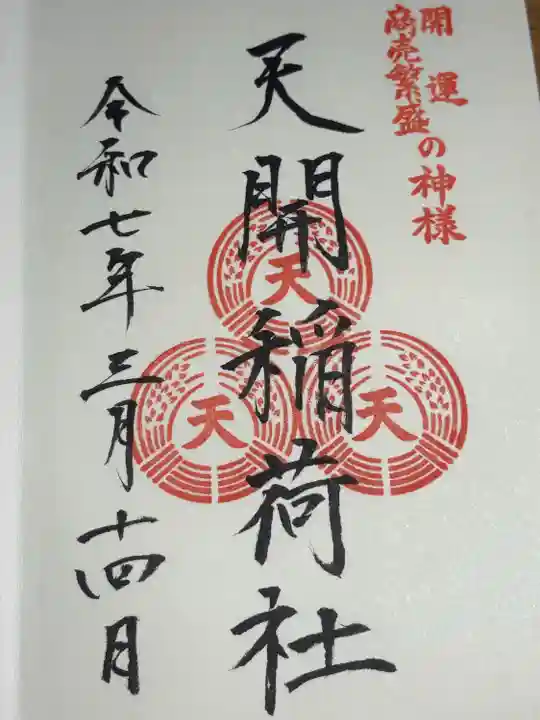 開運
商売繁盛
の神様
天開稲荷社
天
天
天
令和七年三月十四日